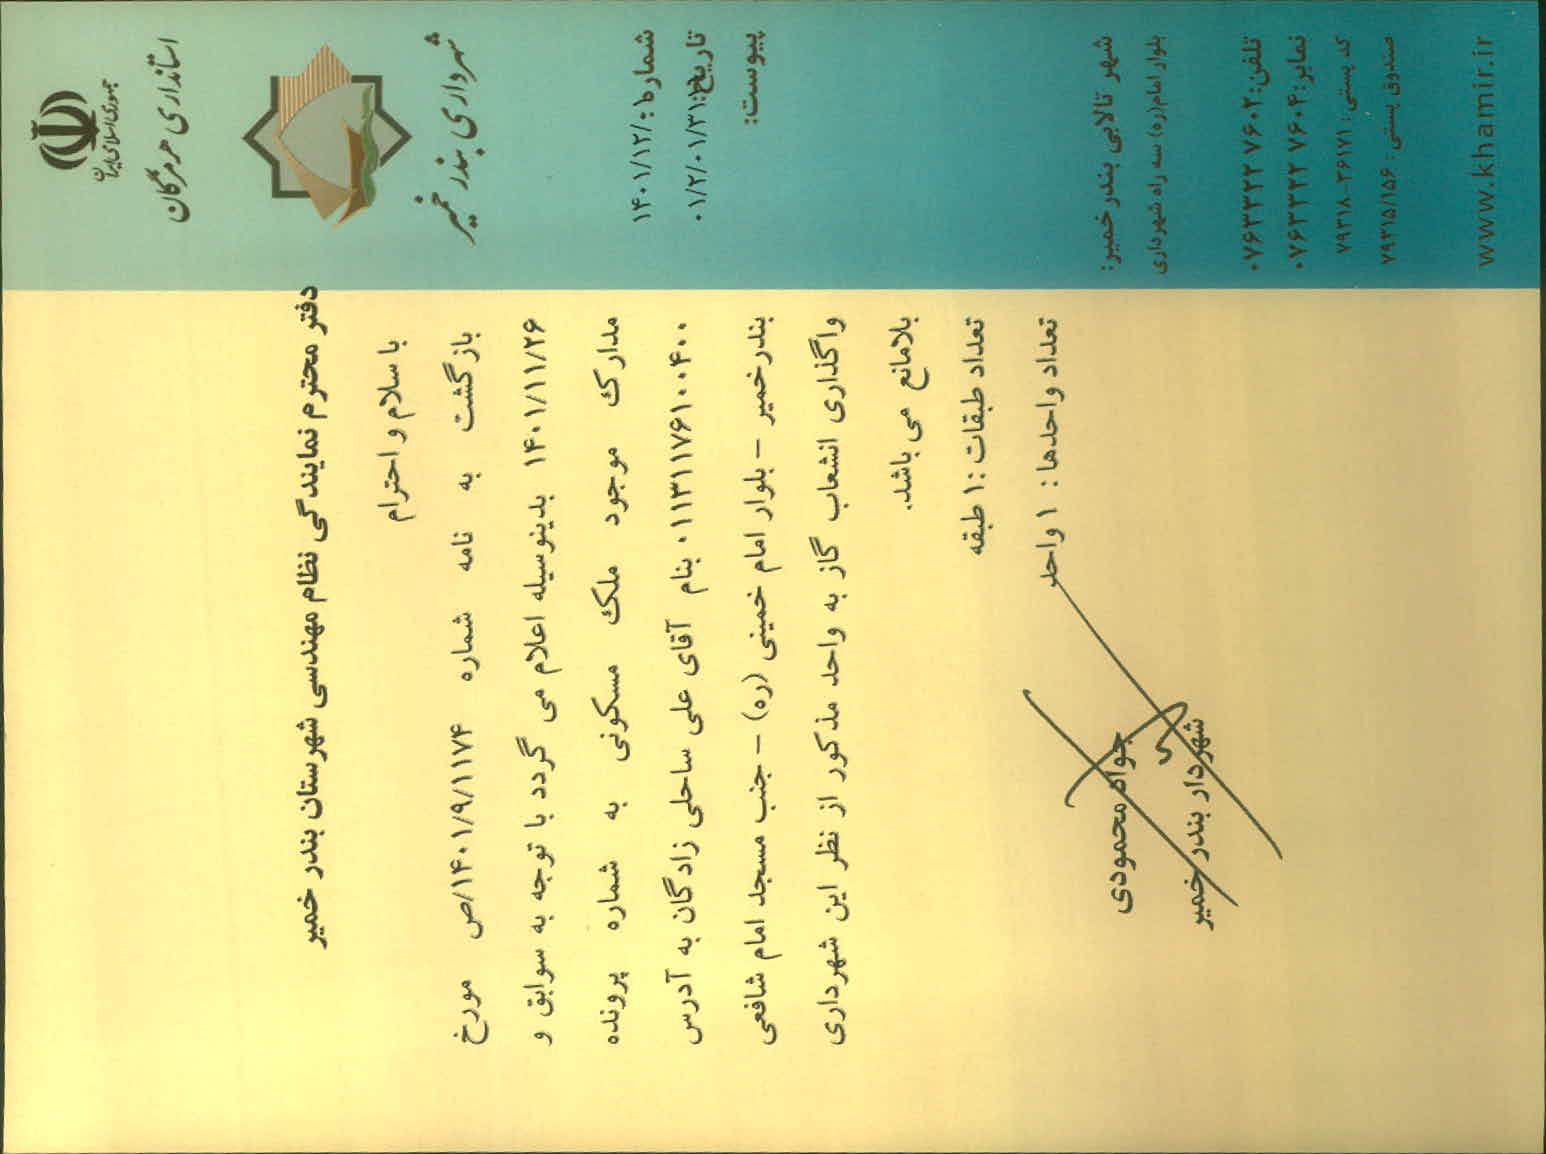 جمهوری اسلامی ایران
استانداری هرمزگان
شهرداری بندر خمیر
شماره:
۱۴۰۱/۱۲/۰
تاریخ:
۰۱/۲/۰۱/۳۱
پیوست:
شهر تالابی بندر خمیر:
بلوار امام(ره) سه راه شهرداری
تلفن: ۰۷۶۳۳۲۲ ۷۶۰۲
نمابر: ۰۷۶۳۳۲۲ ۷۶۰۴
کد پستی: ۷۹۳۱۸-۳۶۱۷۱
صندوق پستی: ۷۹۳۱۵/۱۵۶
www.khamir.ir
دفتر محترم نمایندگی نظام مهندسی شهرستان بندر خمیر
با سلام و احترام
بازگشت به نامه شماره ۱۴۰۱/۹/۱۱۷۴/ص مورخ
۱۴۰۱/۱۱/۲۶ بدینوسیله اعلام می گردد با توجه به سوابق و
مدارک موجود ملک مسکونی به شماره پرونده
۰۱۱۳۱۱۷۶۱۰۰۴۰۰ بنام آقای علی ساحلی زادگان به آدرس
بندرخمیر – بلوار امام خمینی (ره) – جنب مسجد امام شافعی
واگذاری انشعاب گاز به واحد مذکور از نظر این شهرداری
بلامانع می باشد.
تعداد طبقات :۱ طبقه
تعداد واحدها : ۱ واحد
جواد محمودی
شهردار بندر خمیر